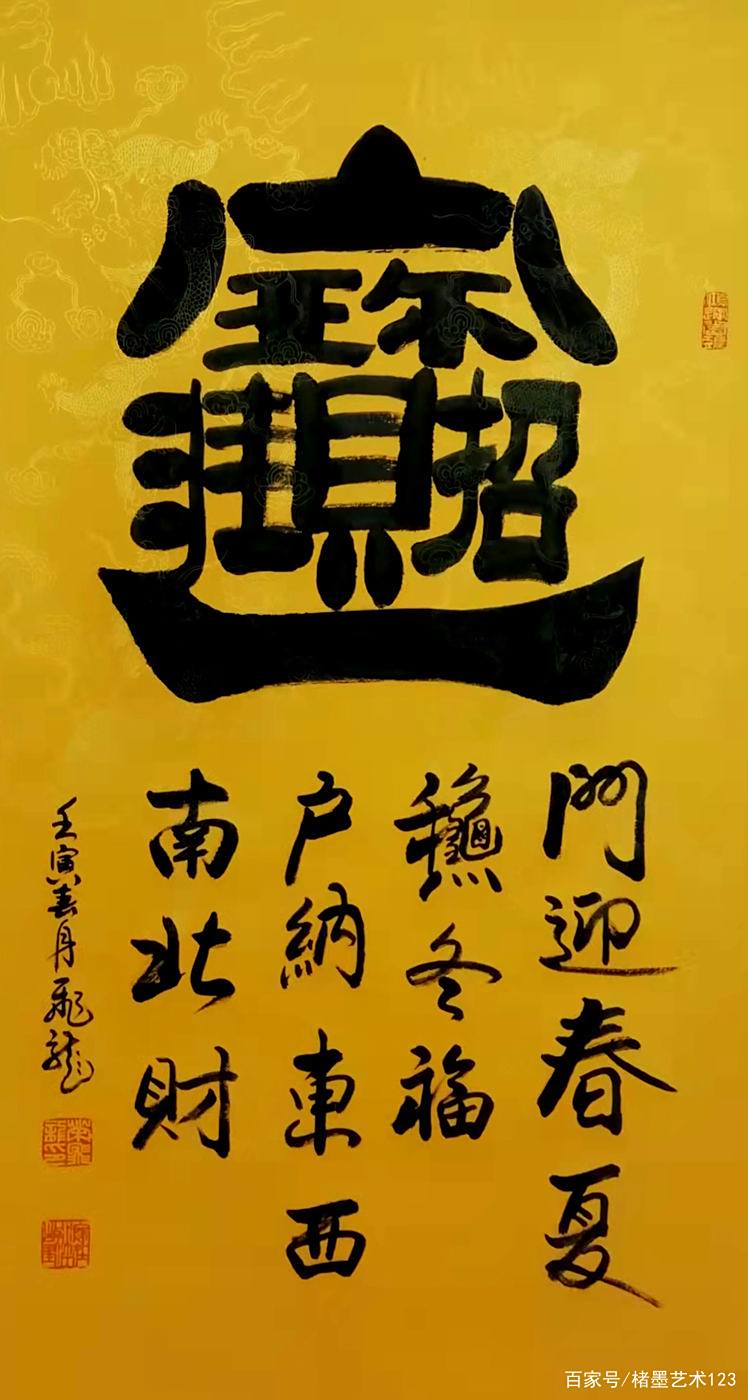 招財進寶
門迎春夏
龝冬福
户納東西
南北財
壬寅春月飛龍
百家号/楮墨艺术123